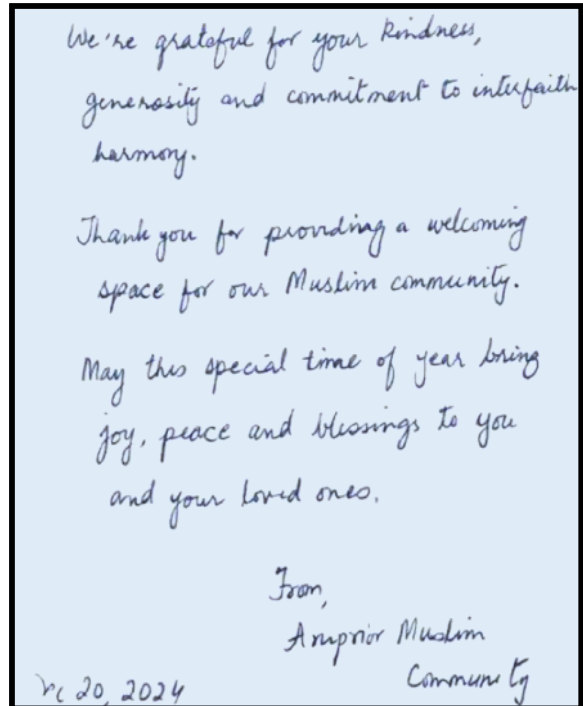 We're grateful for your kindness,
generosity and commitment to interfaith
harmony.
Thank you for providing a welcoming
space for our Muslim community.
May this special time of year bring
joy, peace and blessings to you
and your loved ones.
From,
Arnprior Muslim
Community
20, 2024